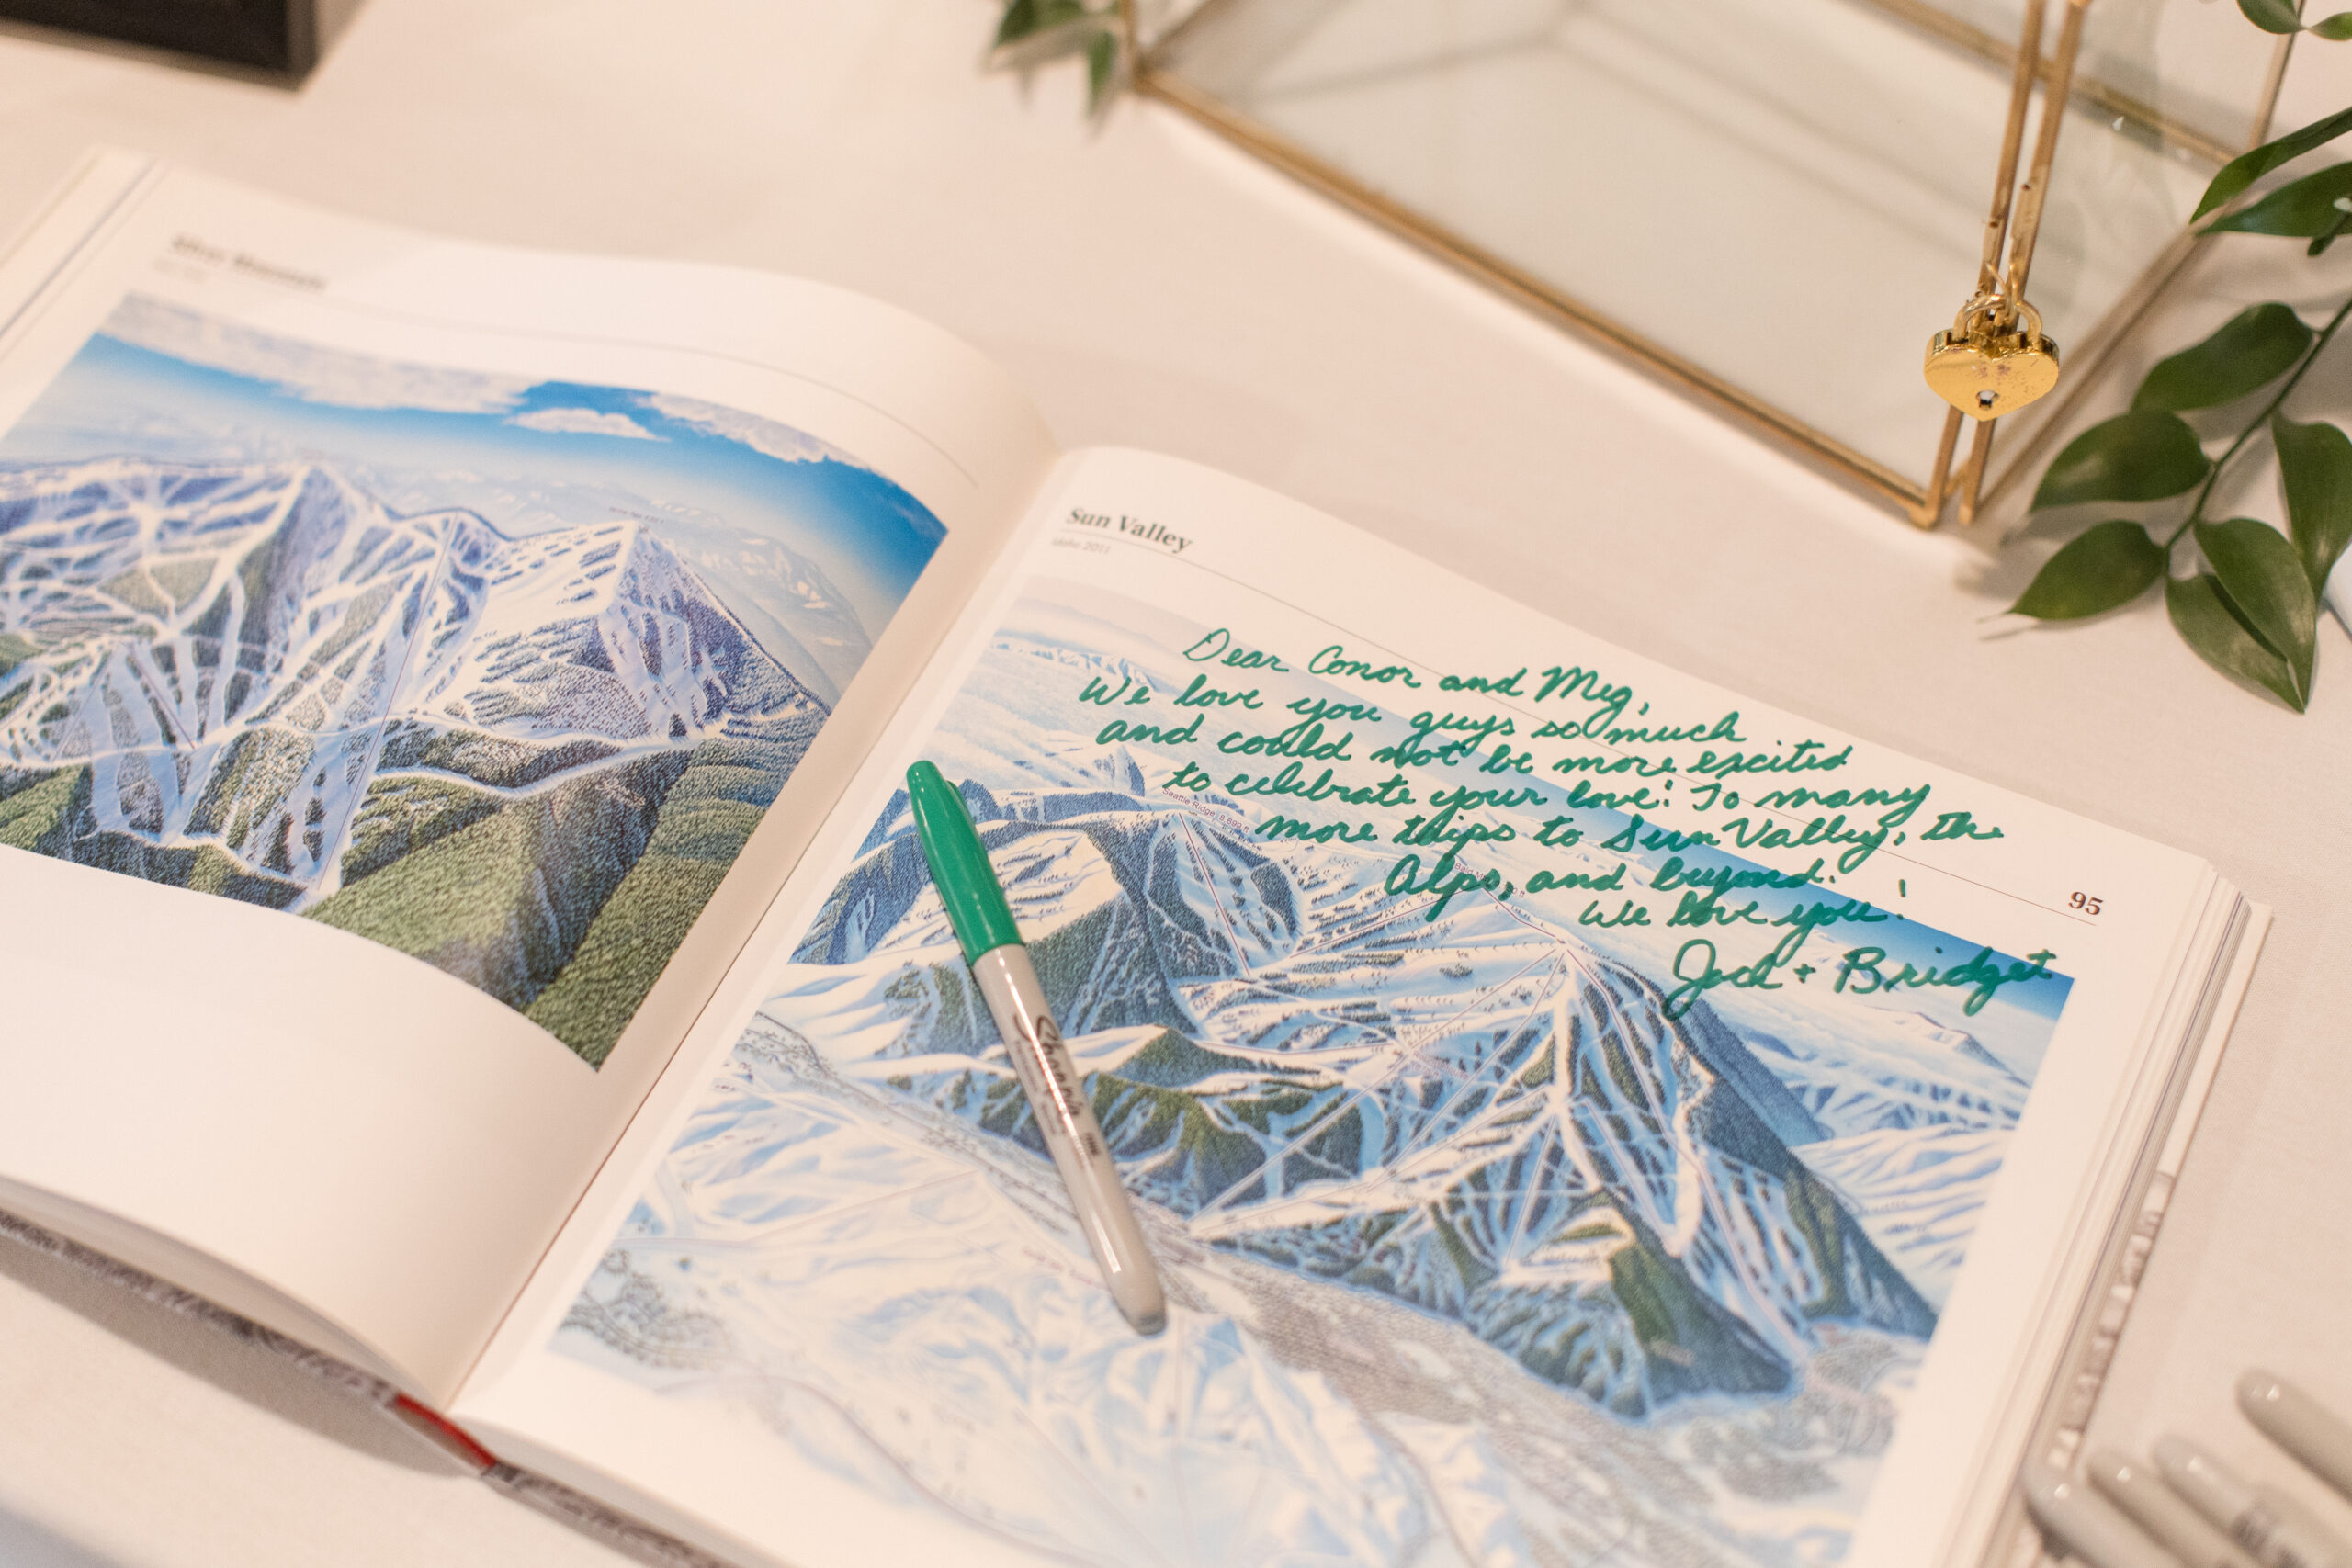 Silver Mountain
Sun Valley
Idaho 2011
Dear Conor and Meg,
We love you guys so much
and could not be more excited
to celebrate your love! To many
more trips to Sun Valley, the
Alps, and beyond!
We love you!
Jack + Bridget
95
Seattle Ridge, 8,680 ft
Sharpie